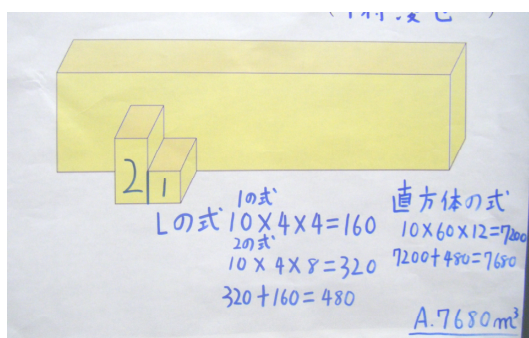 2
1
1の式
Lの式 10×4×4=160
2の式
10×4×8=320
320+160=480
直方体の式
10×60×12=7200
7200+480=7680
A.7680m³